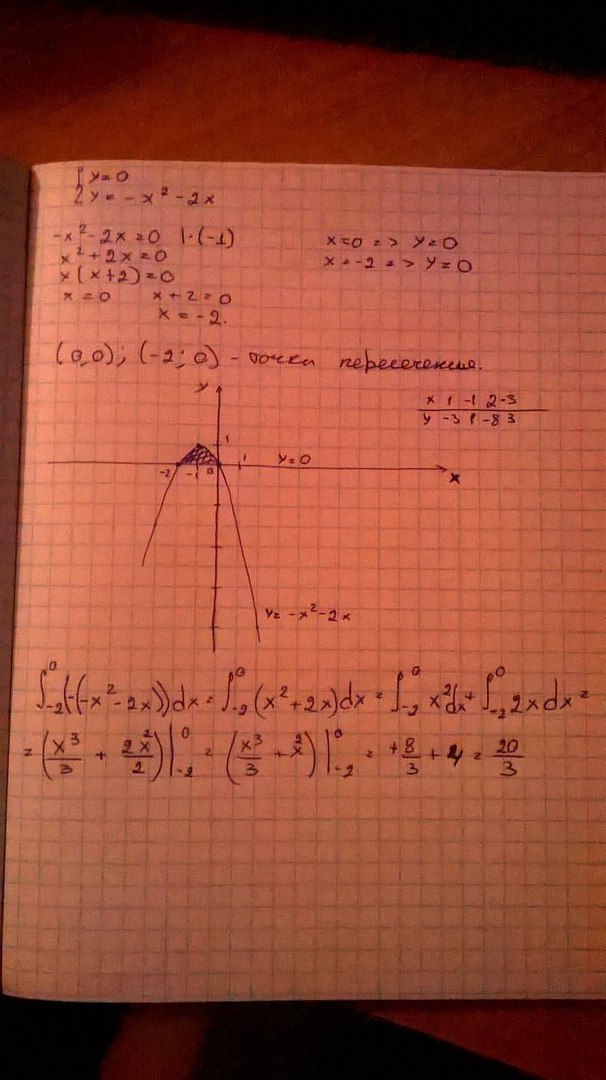 { y=0
y=-x²-2x
-x²-2x=0 |·(-1)
x²+2x=0
x(x+2)=0
x=0 x+2=0
x=-2.
x=0 => y=0
x=-2 => y=0
(0,0); (-2;0) - точка пересечения.
x 1 -1 2 -3
y -3 1 -8 3
y
1
-2 -1 0 1 y=0
x
y=-x²-2x
∫₋₂⁰(-(-x²-2x))dx = ∫₋₂⁰(x²+2x)dx = ∫₋₂⁰x²dx + ∫₋₂⁰2xdx =
= (x³/3 + 2x²/2)|₋₂⁰ = (x³/3 + x²)|₋₂⁰ = +8/3 + 4 = 20/3